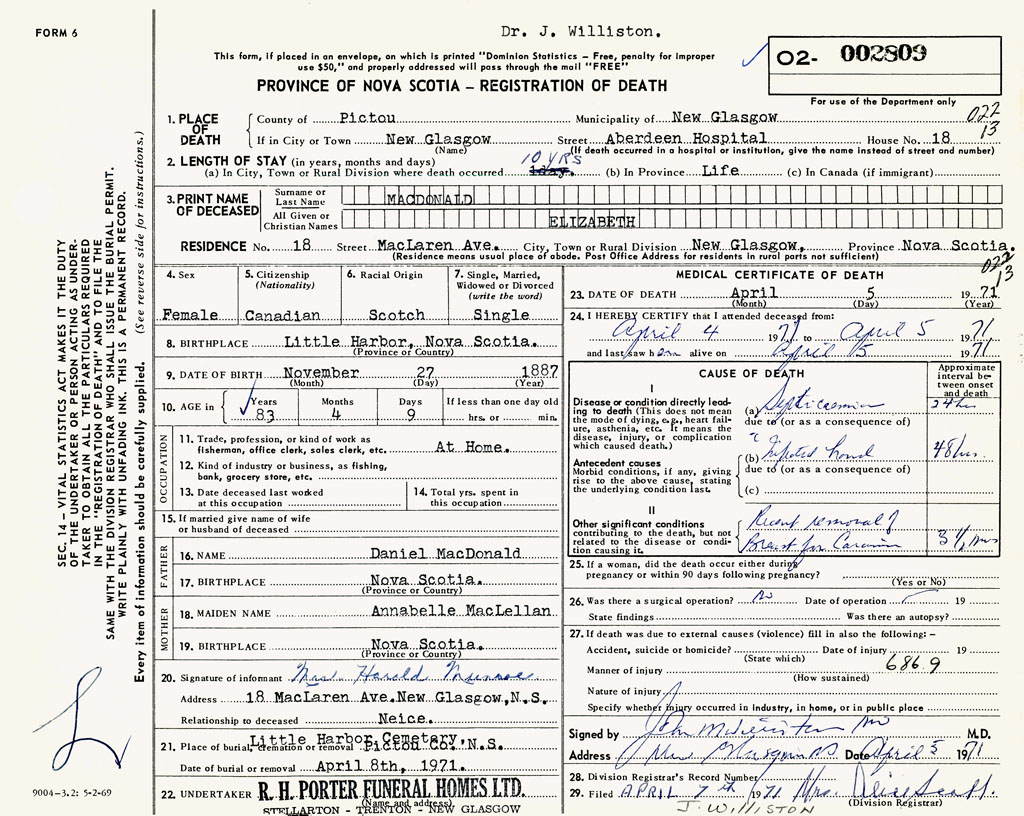 FORM 6
Dr. J. Williston.
This form, if placed in an envelope, on which is printed "Dominion Statistics – Free, penalty for improper
use $50," and properly addressed will pass through the mail "FREE"
02- 002809
For use of the Department only
PROVINCE OF NOVA SCOTIA – REGISTRATION OF DEATH
022
13
1. PLACE OF DEATH
County of Pictou Municipality of New Glasgow
If in City or Town New Glasgow Street Aberdeen Hospital House No. 18
(Name) (If death occurred in a hospital or institution, give the name instead of street and number)
2. LENGTH OF STAY (in years, months and days)
10 YRS
(a) In City, Town or Rural Division where death occurred 1day. (b) In Province Life (c) In Canada (if immigrant)
3. PRINT NAME OF DECEASED
Surname or Last Name MACDONALD
All Given or Christian Names ELIZABETH
RESIDENCE No. 18 Street MacLaren Ave. City, Town or Rural Division New Glasgow, Province Nova Scotia.
(Residence means usual place of abode. Post Office Address for residents in rural parts not sufficient)
022
13
4. Sex
Female
5. Citizenship
(Nationality)
Canadian
6. Racial Origin
Scotch
7. Single, Married,
Widowed or Divorced
(write the word)
Single
8. BIRTHPLACE Little Harbor, Nova Scotia.
(Province or Country)
9. DATE OF BIRTH November 27 1887
(Month) (Day) (Year)
10. AGE in Years Months Days If less than one day old
83 4 9 hrs. or min.
OCCUPATION
11. Trade, profession, or kind of work as
fisherman, office clerk, sales clerk, etc. At Home.
12. Kind of industry or business, as fishing,
bank, grocery store, etc.
13. Date deceased last worked
at this occupation
14. Total yrs. spent in
this occupation
15. If married give name of wife
or husband of deceased
FATHER
16. NAME Daniel MacDonald
17. BIRTHPLACE Nova Scotia.
(Province or Country)
MOTHER
18. MAIDEN NAME Annabelle MacLellan
19. BIRTHPLACE Nova Scotia.
(Province or Country)
20. Signature of informant Mrs Harold Munroe
Address 18 MacLaren Ave.New Glasgow,N.S.
Relationship to deceased Neice.
Little Harbor Cemetary,
21. Place of burial, cremation or removal Pictou Co., N.S.
Date of burial or removal April 8th, 1971.
22. UNDERTAKER R. H. PORTER FUNERAL HOMES LTD.
(Name and address)
STELLARTON - TRENTON - NEW GLASGOW
MEDICAL CERTIFICATE OF DEATH
23. DATE OF DEATH April 5 1971
(Month) (Day) (Year)
24. I HEREBY CERTIFY that I attended deceased from:
April 4 1971 to April 5 1971
and last saw h er alive on April 5 1971
CAUSE OF DEATH
Approximate
interval be-
tween onset
and death
I
Disease or condition directly lead-
ing to death (This does not mean
the mode of dying, e.g., heart fail-
ure, asthenia, etc. It means the
disease, injury, or complication
which caused death.)
(a) Septicaemia 24hr
due to (or as a consequence of)
Antecedent causes
Morbid conditions, if any, giving
rise to the above cause, stating
the underlying condition last.
(b) 48hrs.
due to (or as a consequence of)
(c)
II
Other significant conditions
contributing to the death, but not
related to the disease or condi-
tion causing it.
Recent removal of
Breast for 3 1/2
25. If a woman, did the death occur either during
pregnancy or within 90 days following pregnancy?
(Yes or No)
26. Was there a surgical operation? No Date of operation 19
State findings Was there an autopsy?
27. If death was due to external causes (violence) fill in also the following: –
Accident, suicide or homicide? Date of injury 19
(State which)
686.9
Manner of injury
(How sustained)
Nature of injury
Specify whether injury occurred in industry, in home, or in public place
Signed by John M Williston M.D.
Address New Glasgow NS Date April 5 1971
28. Division Registrar's Record Number
29. Filed APRIL 7th 1971 Mrs. Alice Scott.
(Division Registrar)
J. WILLISTON
SEC. 14 – VITAL STATISTICS ACT MAKES IT THE DUTY
OF THE UNDERTAKER OR PERSON ACTING AS UNDER-
TAKER TO OBTAIN ALL THE PARTICULARS REQUIRED
IN THE "REGISTRATION OF DEATH" AND TO FILE THE
SAME WITH THE DIVISION REGISTRAR WHO SHALL ISSUE THE BURIAL PERMIT.
WRITE PLAINLY WITH UNFADING INK. THIS IS A PERMANENT RECORD.
Every item of information should be carefully supplied. (See reverse side for instructions.)
9004-3.2: 5-2-69